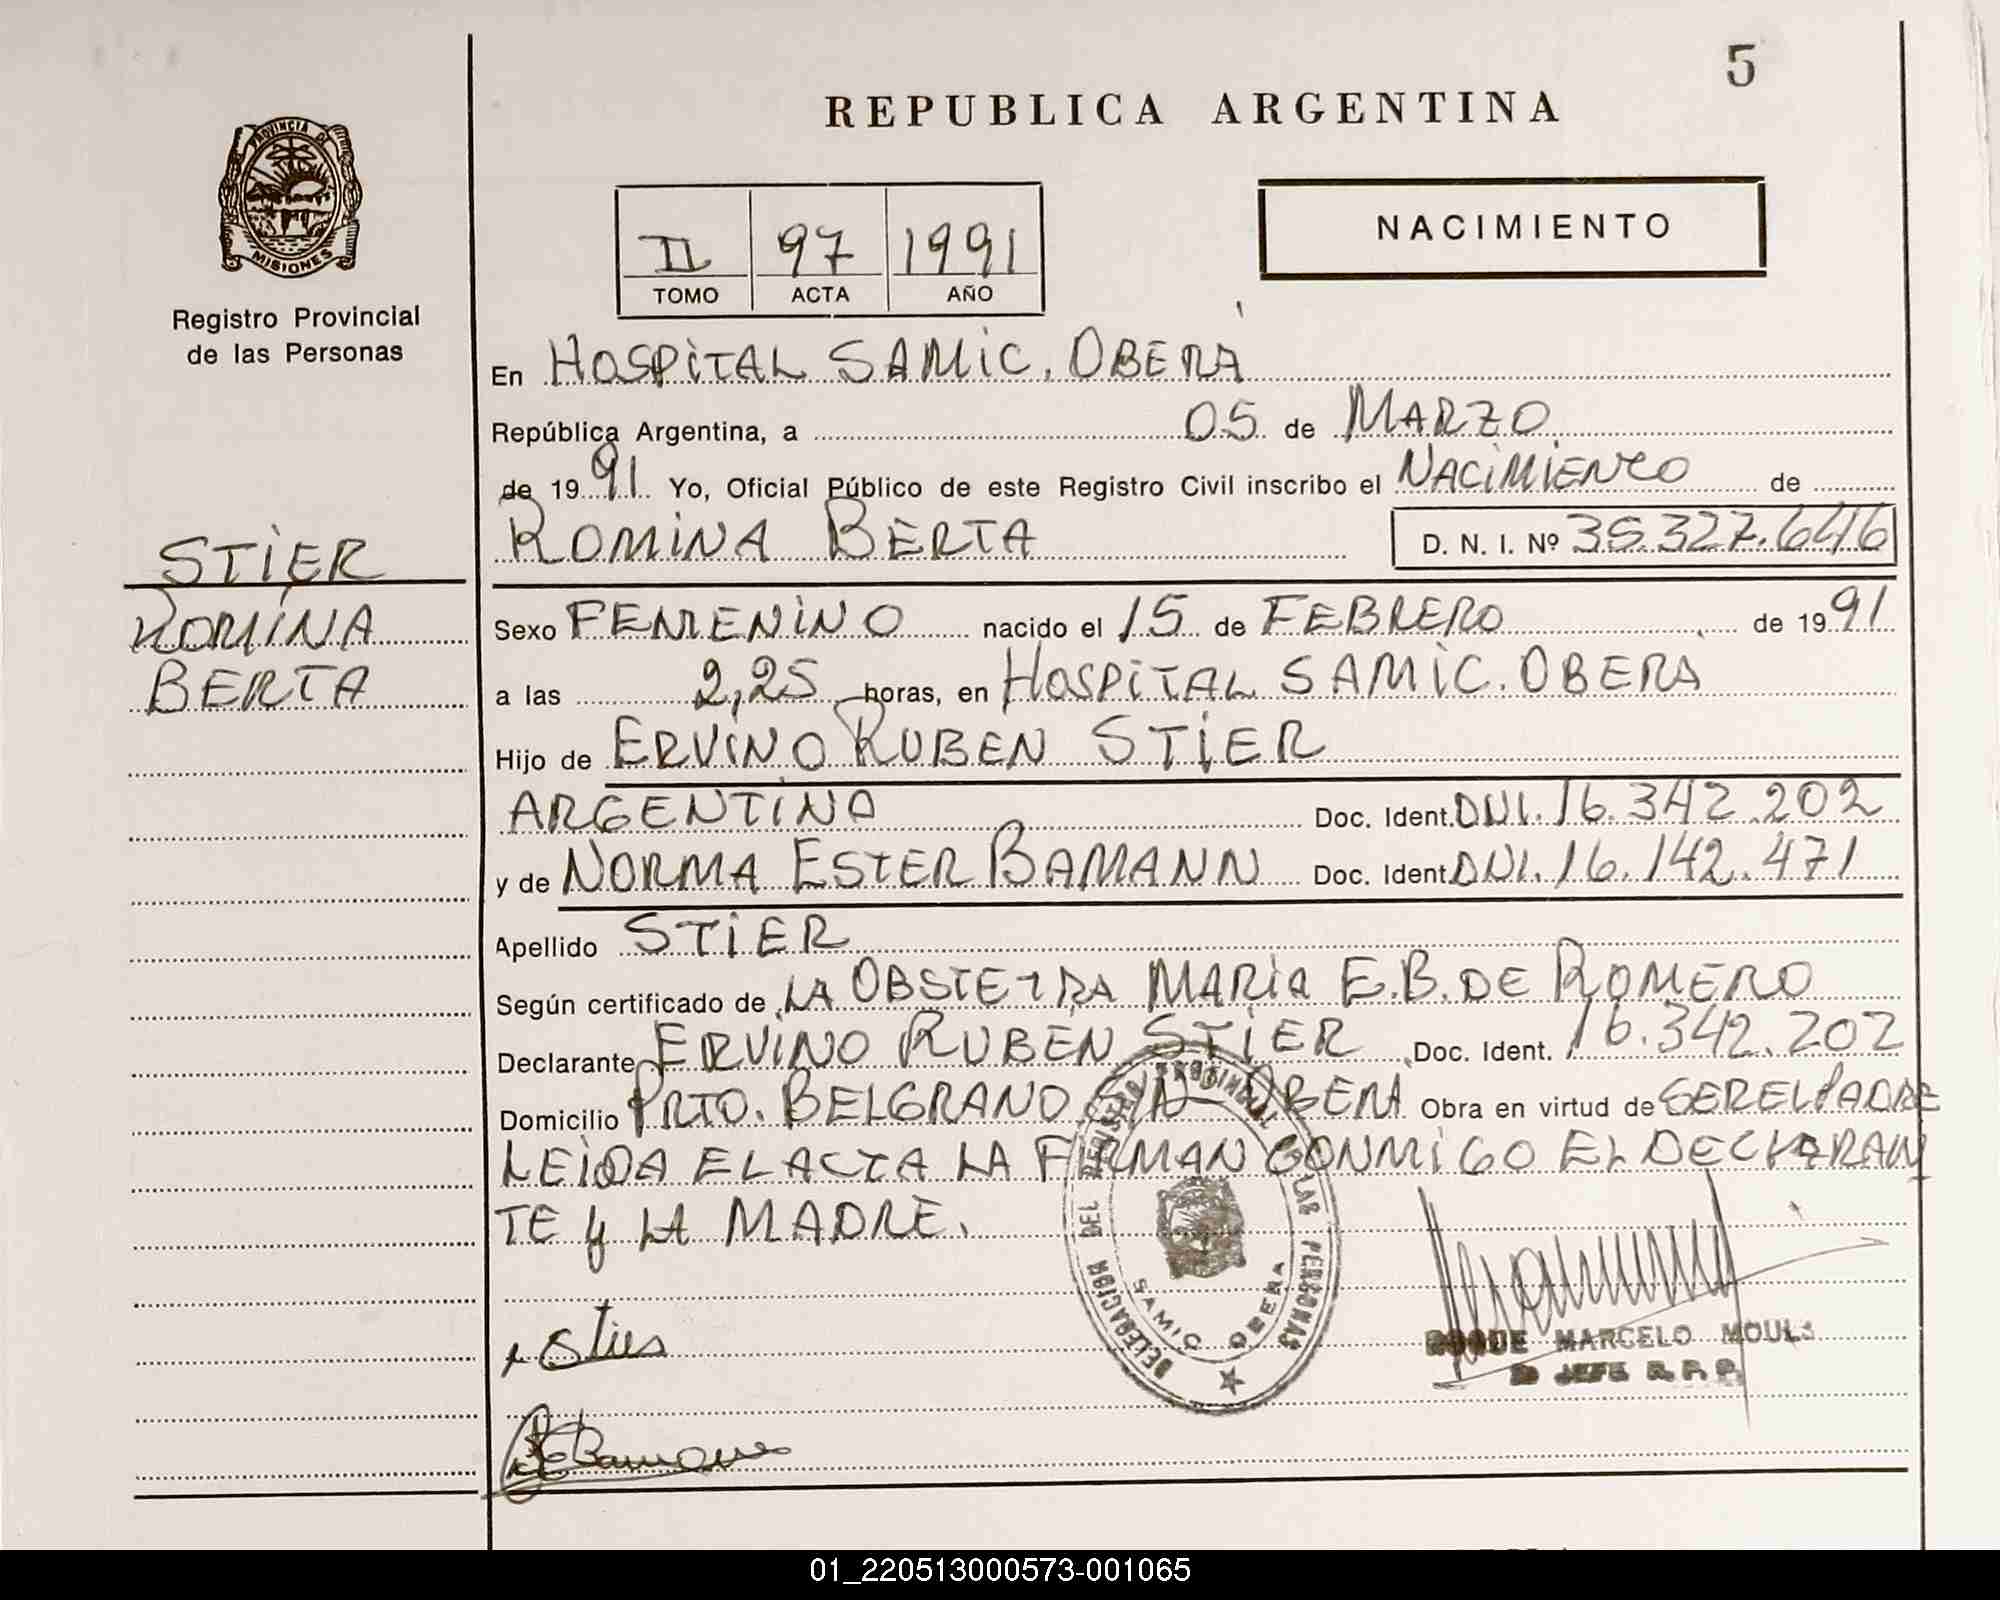 5
REPUBLICA ARGENTINA
PROVINCIA DE
MISIONES
Registro Provincial
de las Personas
II 97 1991
TOMO ACTA AÑO
NACIMIENTO
En HOSPITAL SAMIC. OBERÁ
República Argentina, a 05 de MARZO
de 1991 Yo, Oficial Público de este Registro Civil inscribo el NACIMIENTO de
ROMINA BERTA D. N. I. Nº 35.327.646
STIER
ROMINA
BERTA
Sexo FEMENINO nacido el 15 de FEBRERO de 1991
a las 2,25 horas, en HOSPITAL SAMIC. OBERA
Hijo de ERVINO RUBEN STIER
ARGENTINO Doc. Ident. DNI. 16.342.202
y de NORMA ESTER BAMANN Doc. Ident. DNI. 16.142.471
Apellido STIER
Según certificado de LA OBSTETRA MARIA E.B. DE ROMERO
Declarante ERVINO RUBEN STIER Doc. Ident. 16.342.202
Domicilio PRTO. BELGRANO S/N OBERA Obra en virtud de SER EL PADRE
LEIDA EL ACTA LA FIRMAN CONMIGO EL DECLARAN
TE y LA MADRE.
DELEGACION DEL REGISTRO PROVINCIAL DE LAS PERSONAS
SAMIC OBERA
ROQUE MARCELO MOULS
JEFE R. P. P.
01_220513000573-001065